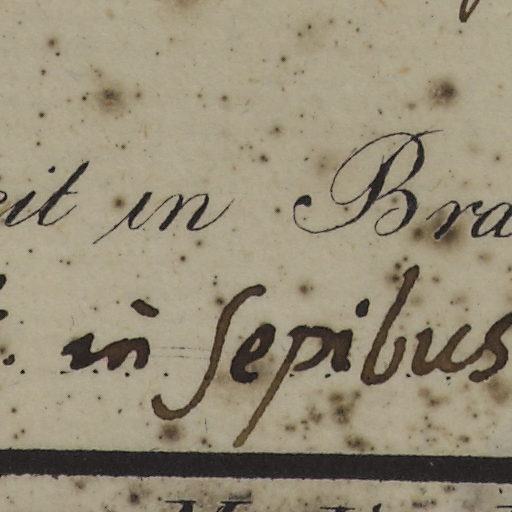 eit in Bra
in Sepibus